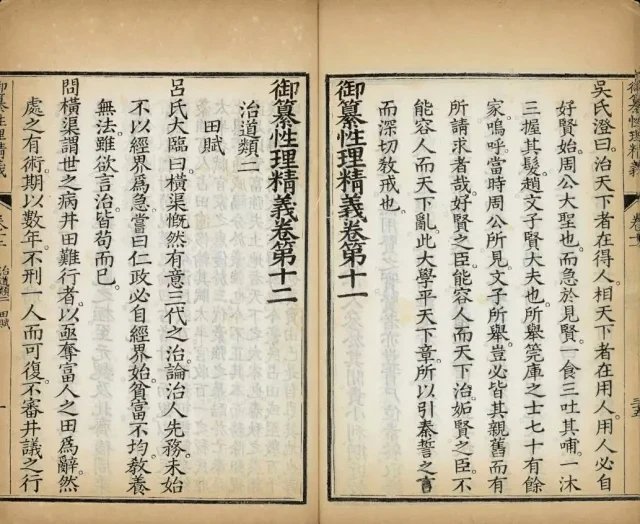 吳氏澄曰治天下者在得人相天下者在用人用人必自
好賢始周公大聖也而急於見賢一食三吐其哺一沐
三握其髮趙文子賢大夫也所舉筦庫之士七十有餘
家嗚呼當時周公所見文子所舉豈必皆其親舊而有
所請求者哉好賢之臣能容人而天下治妬賢之臣不
能容人而天下亂此大學平天下章所以引秦誓之言
而深切教戒也
御纂性理精義卷第十一
御纂性理精義卷第十二
治道類二
田賦
呂氏大臨曰橫渠慨然有意三代之治論治人先務未始
不以經界為急嘗曰仁政必自經界始貧富不均教養
無法雖欲言治皆苟而已
問橫渠謂世之病井田難行者以亟奪富人之田為辭然
處之有術期以數年不刑一人而可復不審井議之行
御纂性理精義
治道類二 田賦
一